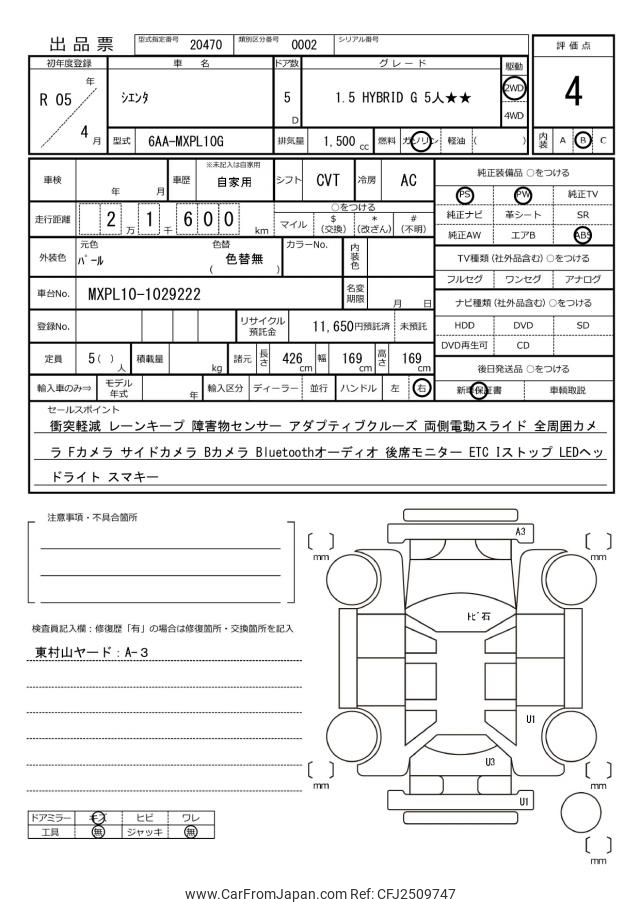 出品票 型式指定番号 20470 類別区分番号 0002 シリアル番号
評価点
4
内装 A B C
初年度登録 車名 ドア数 グレード 駆動
R 05 年 4 月 シエンタ 5 D 1.5 HYBRID G 5人★★ 2WD 4WD
型式 6AA-MXPL10G 排気量 1,500 cc 燃料 ガソリン 軽油 ( )
車検 年 月 車歴 ※未記入は自家用 自家用 シフト CVT 冷房 AC
走行距離 2 万 1 千 6 0 0 km ○をつける
マイル $ (交換) * (改ざん) # (不明)
外装色 元色 パール 色替 ( 色替無 ) カラーNo. 内装色
車台No. MXPL10-1029222 名変期限 月 日
登録No. リサイクル預託金 11,650円預託済 未預託
定員 5 ( ) 人 積載量 kg 諸元 長さ 426 cm 幅 169 cm 高さ 169 cm
輸入車のみ⇒ モデル年式 年 輸入区分 ディーラー 並行 ハンドル 左 右
純正装備品 ○をつける
PS PW 純正TV
純正ナビ 革シート SR
純正AW エアB ABS
TV種類 (社外品含む) ○をつける
フルセグ ワンセグ アナログ
ナビ種類 (社外品含む) ○をつける
HDD DVD SD
DVD再生可 CD
後日発送品 ○をつける
新車保証書 車輌取説
セールスポイント
衝突軽減 レーンキープ 障害物センサー アダプティブクルーズ 両側電動スライド 全周囲カメ
ラ Fカメラ サイドカメラ Bカメラ Bluetoothオーディオ 後席モニター ETC Iストップ LEDヘッ
ドライト スマキー
注意事項・不具合箇所
検査員記入欄：修復歴「有」の場合は修復箇所・交換箇所を記入
東村山ヤード：A-3
ドアミラー キズ ヒビ ワレ
工具 無 ジャッキ 無
A3
mm
mm
トビ石
U1
U3
mm
mm
U1
mm
www.CarFromJapan.com Ref: CFJ2509747